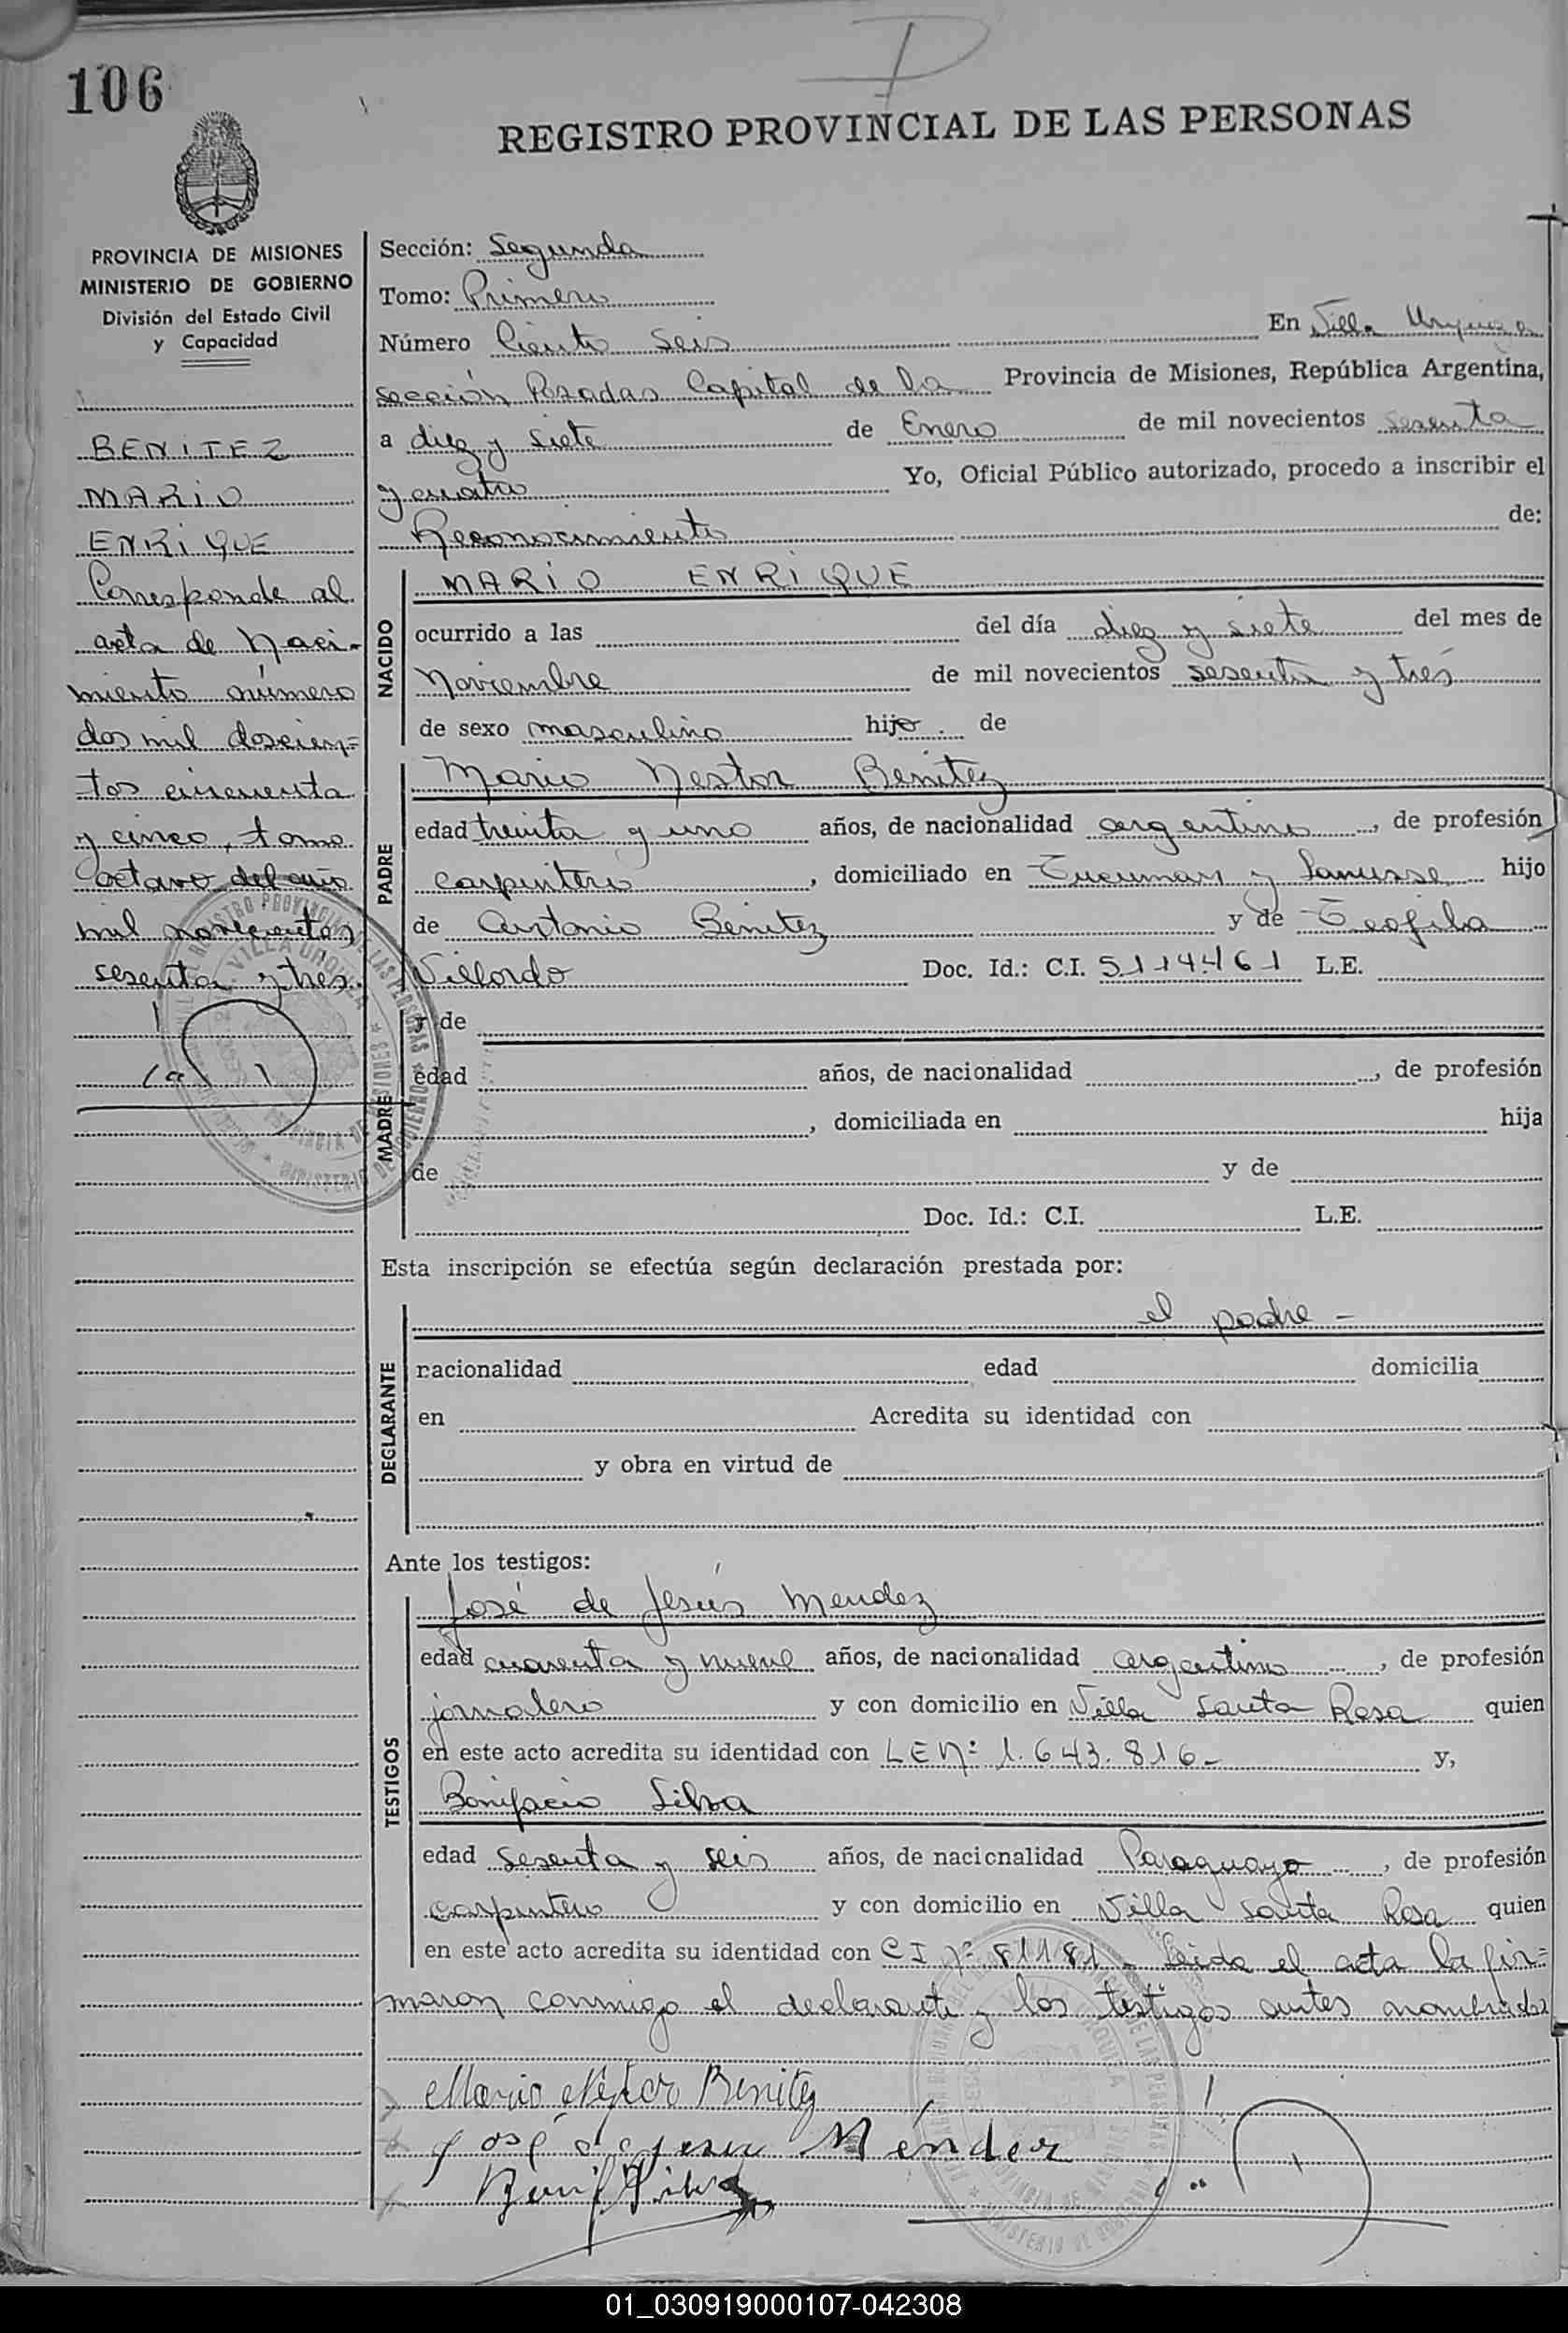 106
REGISTRO PROVINCIAL DE LAS PERSONAS
PROVINCIA DE MISIONES
MINISTERIO DE GOBIERNO
División del Estado Civil
y Capacidad
BENITEZ
MARIO
ENRIQUE
Corresponde al
acta de Naci-
miento número
dos mil doscien=
tos cincuenta
y cinco, tomo
octavo del año
mil novecientos
sesenta y tres.
Sección: Segunda
Tomo: Primero
Número Ciento Seis En Villa Urquiza
sección Posadas Capital de la Provincia de Misiones, República Argentina,
a diez y siete de Enero de mil novecientos sesenta
y cuatro Yo, Oficial Público autorizado, procedo a inscribir el
Reconocimiento de:
NACIDO
MARIO ENRIQUE
ocurrido a las del día diez y siete del mes de
Noviembre de mil novecientos sesenta y tres
de sexo masculino hijo de
PADRE
Mario Nestor Benitez
edad treinta y uno años, de nacionalidad argentino, de profesión
carpintero, domiciliado en Tucuman y Lanusse hijo
de Antonio Benitez y de Teofila
Villordo Doc. Id.: C.I. 5.114.461 L.E.
MADRE
y de
edad años, de nacionalidad , de profesión
, domiciliada en hija
de y de
Doc. Id.: C.I. L.E.
Esta inscripción se efectúa según declaración prestada por:
DECLARANTE
el padre -
nacionalidad edad domicilia
en Acredita su identidad con
y obra en virtud de
Ante los testigos:
TESTIGOS
José de Jesús Mendez
edad cuarenta y nueve años, de nacionalidad argentino, de profesión
jornalero y con domicilio en Villa Santa Rosa quien
en este acto acredita su identidad con LE Nº 1.643.816- y,
Bonifacio Silva
edad sesenta y seis años, de nacionalidad Paraguayo, de profesión
carpintero y con domicilio en Villa Santa Rosa quien
en este acto acredita su identidad con CI Nº 81181- Leida el acta la fir=
maron conmigo el declarante y los testigos antes nombrados
Mario Nestor Benitez
José de Jesus Méndez
Bonif Silva
01_030919000107-042308